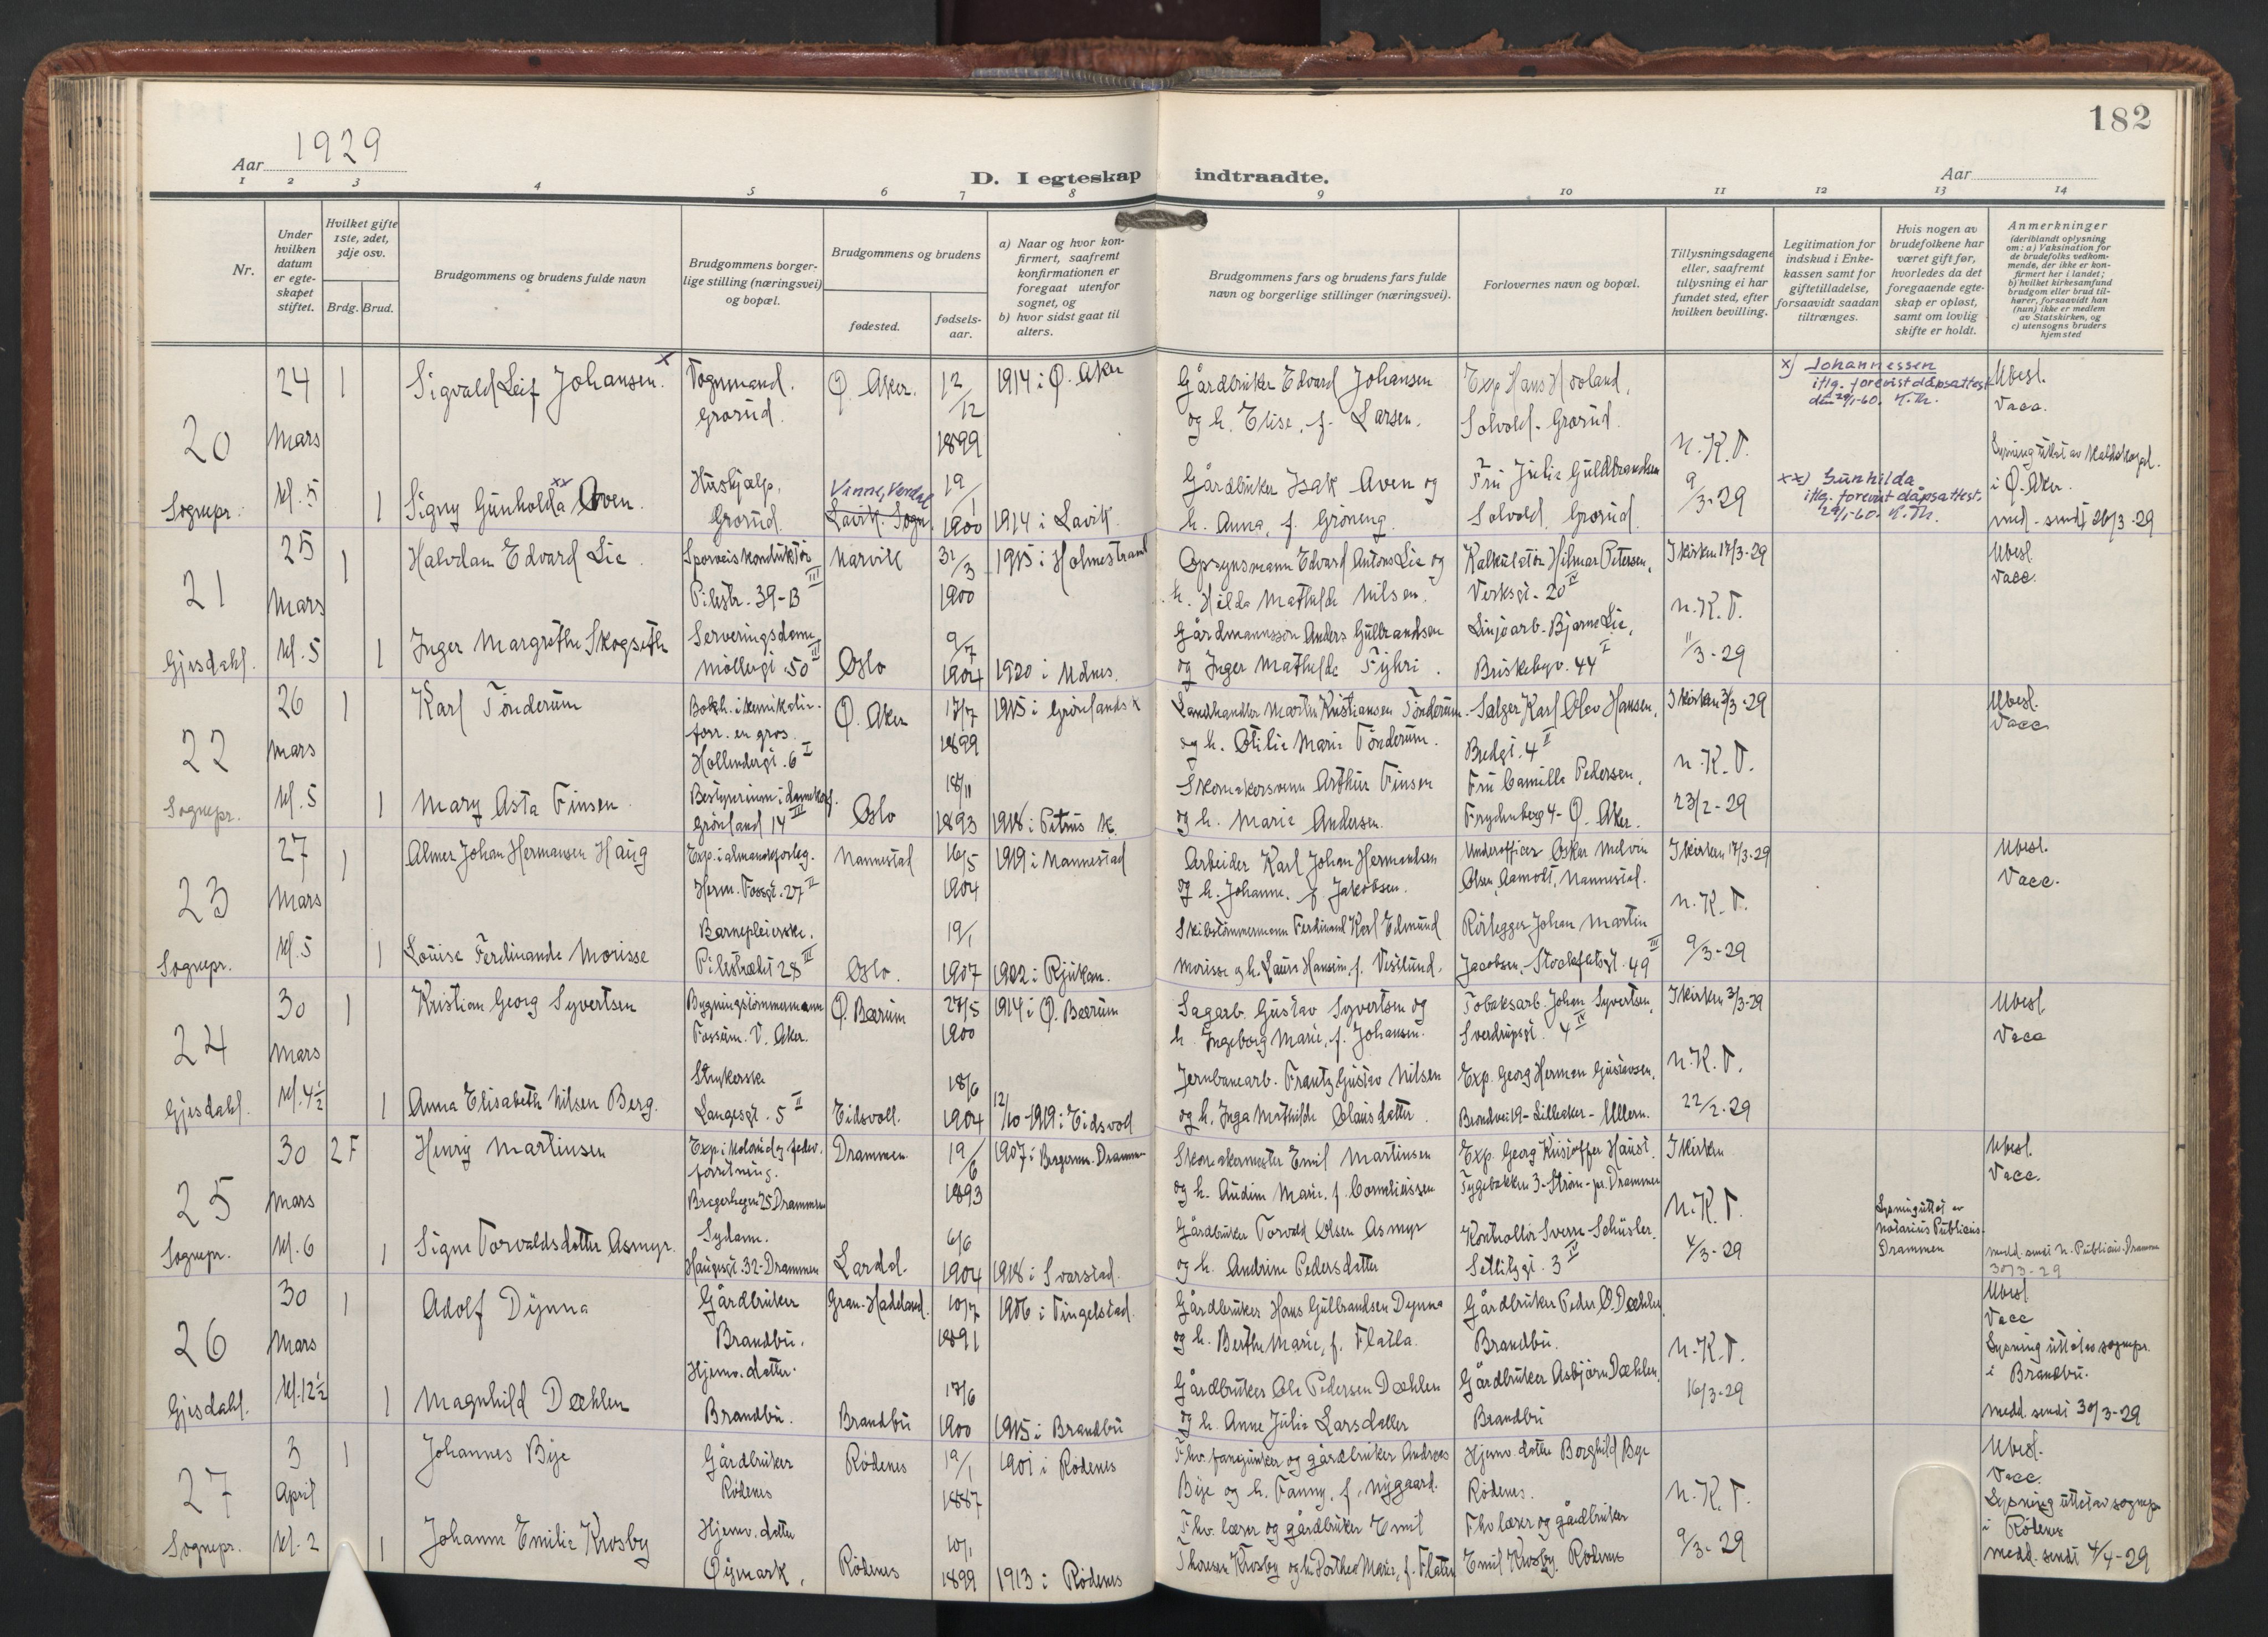 182
Aar 1929
D. I egteskap indtraadte.
Aar
1 2 3 4 5 6 7 8 9 10 11 12 13 14
Nr.
Under hvilken datum er egteskapet stiftet.
Hvilket gifte 1ste, 2det, 3dje osv.
Brdg. Brud.
Brudgommens og brudens fulde navn
Brudgommens borgerlige stilling (næringsvei) og bopæl.
Brudgommens og brudens
fødested.
fødselsaar.
a) Naar og hvor konfirmert, saafremt konfirmationen er foregaat utenfor sognet, og
b) hvor sidst gaat til alters.
Brudgommens fars og brudens fars fulde navn og borgerlige stillinger (næringsvei).
Forlovernes navn og bopæl.
Tillysningsdagene eller, saafremt tillysning ei har fundet sted, efter hvilken bevilling.
Legitimation for indskud i Enkekassen samt for giftetilladelse, forsaavidt saadan tiltrænges.
Hvis nogen av brudefolkene har været gift før, hvorledes da det foregaaende egteskap er opløst, samt om lovlig skifte er holdt.
Anmerkninger
(deriblandt oplysning om: a) Vaksination for de brudefolks vedkommende, der ikke er konfirmert her i landet; b) hvilket kirkesamfund brudgom eller brud tilhører, forsaavidt han (hun) ikke er medlem av Statskirken, og c) utensogns bruders hjemsted
20 Sognepr.
24 Mars Kl. 5
1 Sigvald Leif Johansen. x
Vognmand. Grorud.
Ø. Aker. 12/12 1899
1914 i Ø. Aker
Gårdbruker Edvard Johansen
og h. Elise, f. Larsen.
Exp Hans Hovland,
Solvold. Grorud.
x) Johannessen
iflg. forevist dåpsattest
Ubesl.
Vacc.
1 Signy Gunholda xx Aven
Hushjælp. Grorud.
Vinne, Verdal
Lavik. Sogn
19/1 1900 1914 i Lavik.
Gårdbruker Isak Aven og
h. Anna, f. Gröneng.
Fru Julie Guldbrandsen
Solvold. Grorud.
N.K.T. 9/3-29
xx) Gunhilda
iflg. forevist dåpsattest.
i Ø. Aker.
21 Gjesdahl.
25 Mars Kl. 5
1 Halvdan Edvard Lie
Sporveiskonduktör
Pilestr. 39-B III
Narvik 31/3 1900
1915 i Holmestrand
Opsynsmann Edvard Antons Lie og
h. Hilda Mathilde Nilsen.
Kalkulatör Hilmar Petersen,
Verksgt. 20 II
I kirken 17/3-29
Ubesl.
Vacc.
1 Inger Margrethe Skogseth
Serveringsdame
Möllergt. 50 III
Oslo 9/7 1904 1920 i Udnes.
Gårdmannssön Anders Gulbrandsen
og Inger Mathilde Fyhri.
Linjearb. Bjarne Lie,
Briskebyv. 44 I
N.K.T. 11/3-29
22 Sognepr.
26 Mars Kl. 5
1 Karl Tönderum
forr. en gros.
Hollendergt. 6 I
Ø. Aker 17/7 1899
1915 i Grönlands k
Landhandler Martin Kristiansen Tönderum
og h. Otilie Marie Tönderum.
Selger Karl Olav Hansen,
Bredgt. 4 II
I kirken 3/3-29
Ubesl.
Vacc
1 Mary Asta Finsen
Grönland 14 III
Oslo 18/11 1893 1918 i Petrus K.
Skomakersvenn Arthur Finsen
og h. Marie Andersen.
Fru Camilla Pedersen,
Frydenberg 4 - Ø. Aker.
N.K.T. 23/2-29
23 Sognepr.
27 Mars Kl. 5
1 Almer Johan Hermansen Haug
Herm. Fossgt. 27 II
Nannestad 16/5 1904
1919 i Nannestad
Arbeider Karl Johan Hermandsen
og h. Johanne, f. Jakobsen.
Underofficer Oskar Melvin
Olsen, Aamodt, Nannestad.
I kirken 17/3-29
Ubesl.
Vacc.
1 Louise Ferdinande Morisse
Barnepleierske.
Pilestrædet 28 III
Oslo. 19/1 1907 1922 i Rjukan.
Skibstömmermann Ferdinand Karl Edmund
Morisse og h. Laura Hansine, f. Vestlund.
Rörlegger Johan Martin
Jacobsen, Stockfletsgt. 49 III
N.K.T. 9/3-29
24 Gjesdahl.
30 Mars Kl. 4½
1 Kristian Georg Syvertsen
Bygningstömmermann
Fossum. V. Aker.
Ø. Bærum 27/5 1900
1914 i Ø. Bærum
Sagarb. Gustav Syvertsen og
h. Ingeborg Marie, f. Johansen.
Tobaksarb. Johan Syvertsen,
Sverdrupsgt. 4 IV
I kirken 3/3-29
Ubesl
Vacc
1 Anna Elisabeth Nilsen Berg.
Strykerske
Langesgt. 5 II
Eidsvoll. 18/6 1904 12/10-1919 i Eidsvod
Jernbanearb. Frantz Gustav Nilsen
og h. Inga Mathilde Olausdatter
Exp. Georg Herman Gustavsen,
Brendvei 19 - Lilleaker - Ullern.
N.K.T. 22/2-29
25 Sognepr.
30 Mars Kl. 6
2 F Henry Martinsen
forretning.
Bragerhegn 25 Drammen
Drammen. 19/6 1893
1907 i Bragernes. Drammen
Skomakermester Emil Martinsen
og h. Audine Marie, f. Corneliussen
Exp. Georg Kristoffer Haust.
I kirken
Ubesl.
Vacc.
1 Signe Torvaldsdatter Asmyr.
Sydame.
Haugesgt. 32 - Drammen
Lardal. 6/6 1904 1918 i Svarstad.
Gårdbruker Torvald Olsen Asmyr
og h. Andrine Pedersdatter
Kontrollör Sverre Schüsler,
3 IV
N.K.T. 4/3-29
Lysning uttat av
Notarius Publicus
Drammen
medd. sendt N. Publicus. Drammen
30/3-29
26 Gjesdahl.
30 Mars Kl. 12½
1 Adolf Dynna
Gårdbruker
Brandbu.
Gran. Hadeland. 10/7 1891
1906 i Tingelstad.
Gårdbruker Hans Gulbrandsen Dynna
og h. Berthe Marie, f. Flatla.
Gårdbruker Peder O. Dæhlen,
Brandbu.
Ubesl
Vacc
Lysning uttat av sognepr.
i Brandbu.
medd. sendt 30/3-29
1 Magnhild Dæhlen
Hjemv. datter.
Brandbu.
Brandbu 17/6 1900 1915 i Brandbu
Gårdbruker Ole Pedersen Dæhlen
og h. Anne Julie Larsdatter
Gårdbruker Asbjörn Dæhlen,
Brandbu
N.K.T. 16/3-29
27 Sognepr.
3 April Kl. 2
1 Johannes Bye
Gårdbruker
Rödenes
Rödenes 19/1 1887
1901 i Rödenes
Fhv. fanejunker og gårdbruker Andreas
Bye og h. Fanny, f. Nygaard.
Hjemv. datter Borghild Bye
Rödenes.
Ubesl.
Vacc.
Lysning uttat av sognepr
i Rödenes
medd. sendt 4/4-29
1 Johanne Emilie Krosby
Hjemv. datter
Öymark,
Rödenes 10/1 1899 1913 i Rödenes
Fhv. lærer og gårdbruker Emil
Thoresen Krosby og h. Dorthea Marie, f. Flaten
Fhv lærer og gårdbruker
Emil Krosby. Rödenes
N.K.T. 9/3-29